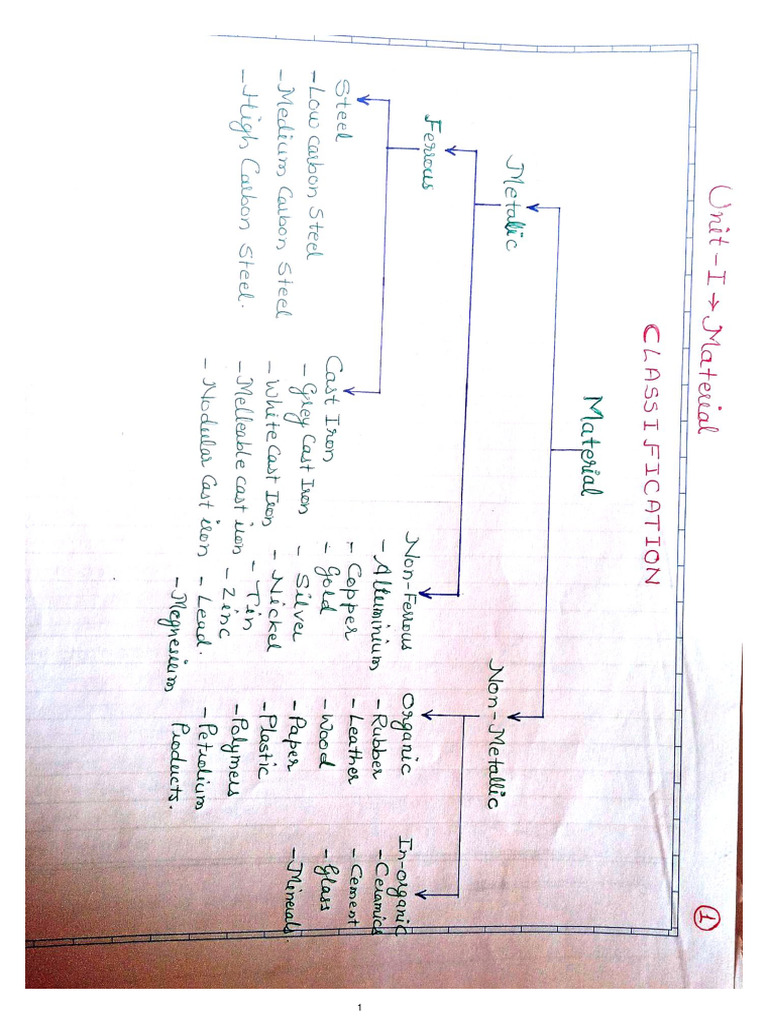 Unit-I → Material
1
CLASSIFICATION
Material
Metallic
Non-Metallic
Ferrous
Non-Ferrous
- Alluminium
- Copper
- Gold
- Silver
- Nickel
- Tin
- Zinc
- Lead.
- Megnesium
Organic
- Rubber
- Leather
- Wood
- Paper
- Plastic
- Polymers
- Petrolium
Products.
In-organic
- Ceramics
- Cement
- Glass
- Minerals.
Steel
- Low carbon Steel
- Medium Carbon Steel
- High Carbon Steel.
Cast Iron
- Grey Cast Iron
- White Cast Iron
- Melleable cast iron
- Nodular Cast iron
1